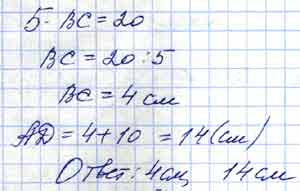 5 · BC = 20
BC = 20 : 5
BC = 4 см
AD = 4 + 10 = 14 (см)
Ответ: 4 см, 14 см